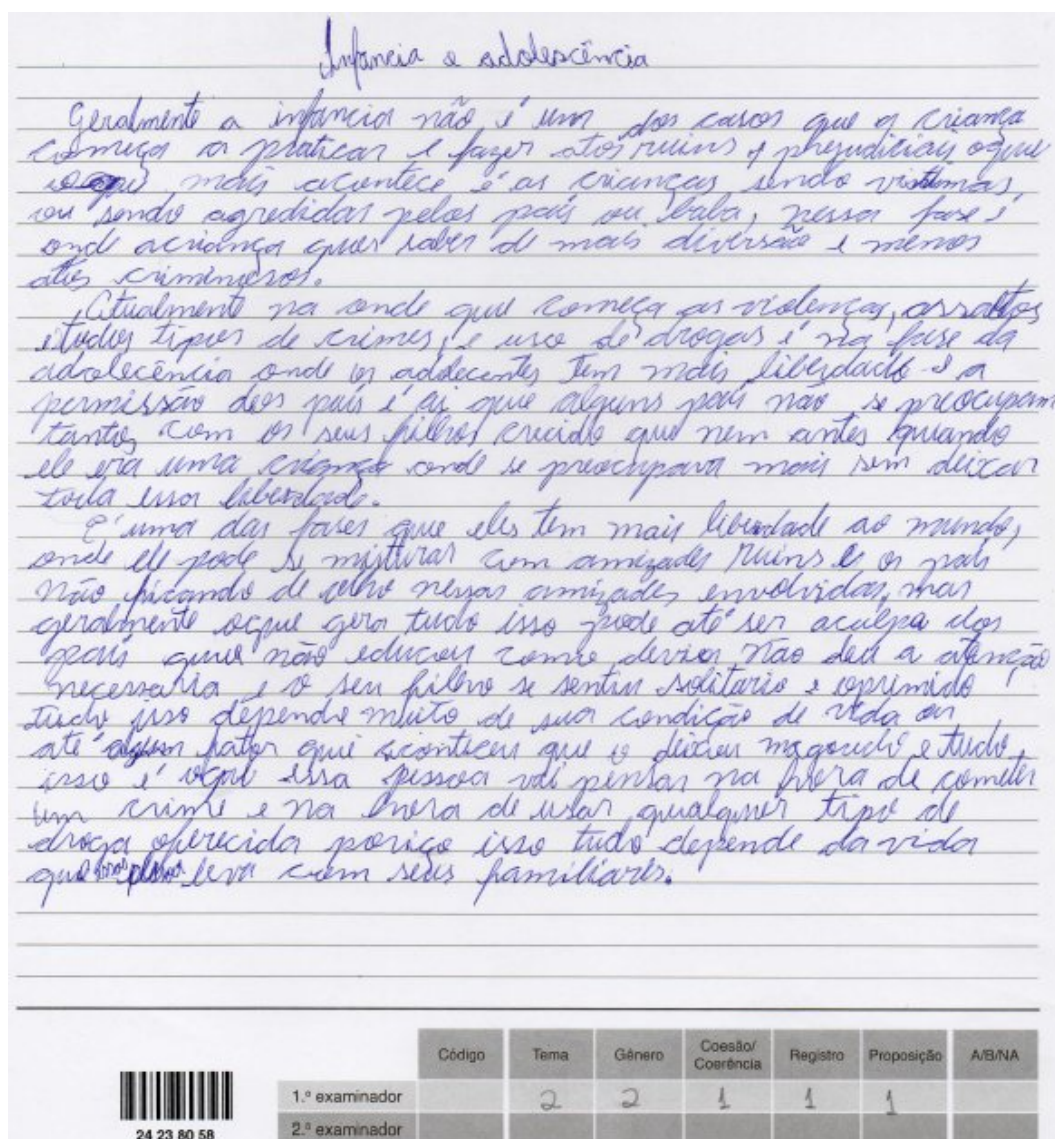 Infancia e adolescência
Geralmente a infância não é um dos casos que a criança
começa a praticar e fazer atos ruins e prejudiciais oque
mais acontece é as crianças sendo vistimas,
ou sendo agredidas pelos pais ou baba, nessa fase é
onde acriança quer saber de mais diversão e menos
atos criminosos.
Atualmente na onde que começa as violenças, assaltos
e todos tipos de crimes, e uso de drogas é na fase da
adolecência onde os adolecentes tem mais liberdade e a
permissão dos pais é ai que alguns pais não se preocupam
tanto, com os seus filhos crecido que nem antes quando
ele era uma criança onde se preocupava mais sem deixar
toda essa liberdade.
É uma das fases que eles tem mais liberdade ao mundo,
onde ele pode se misturar com amizades ruins e os pais
não ficando de olho nessas amizades envolvidas, mas
geralmente oque gera tudo isso pode até ser aculpa dos
pais que não educou como devia não deu a atenção
necessaria e o seu filho se sentiu solitario e oprimido
tudo isso depende muito de sua condição de vida ou
até algum fator que aconteceu que o deixou magoado e tudo
isso é oqual essa pessoa vai pensar na hora de cometer
um crime e na hora de usar qualquer tipo de
droga oferecida poriço isso tudo depende da vida
que leva com seus familiares.
Código Tema Gênero Coesão/Coerência Registro Proposição A/B/NA
1.º examinador 2 2 1 1 1
2.º examinador
24 23 80 58